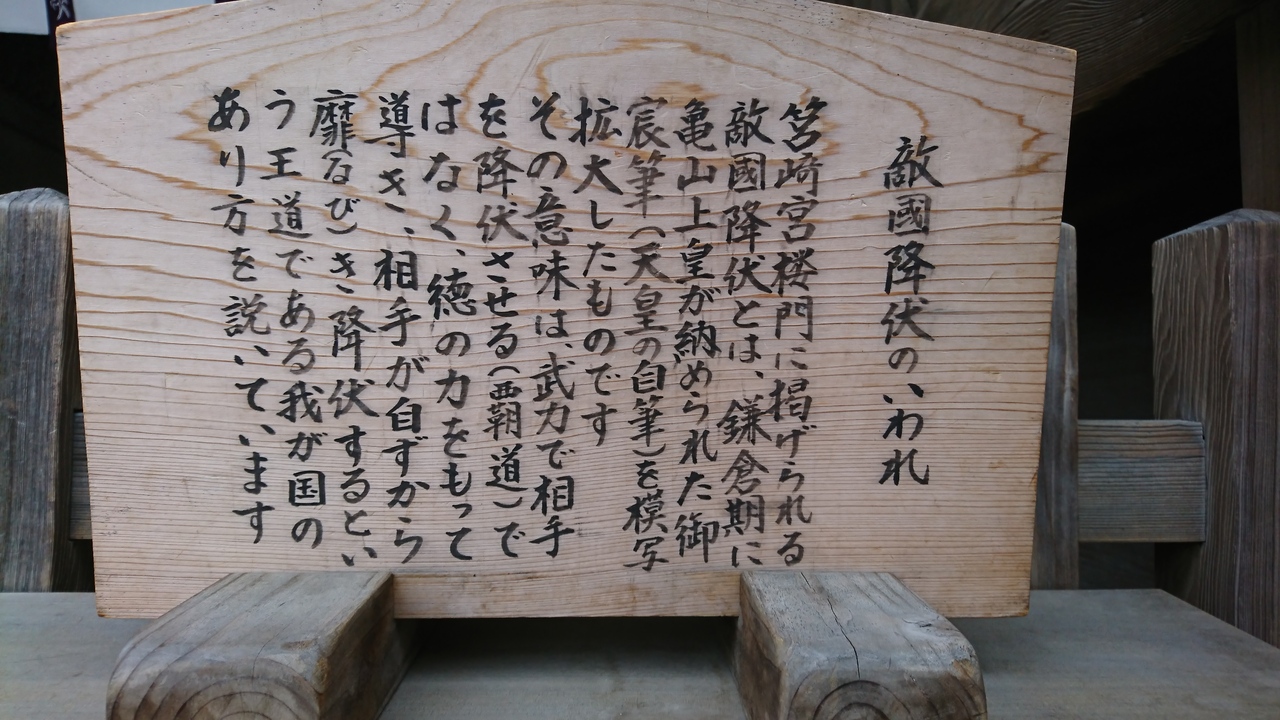 敵國降伏のいわれ
筥崎宮桜門に掲げられる
敵國降伏とは、鎌倉期に
亀山上皇が納められた御
宸筆(天皇の自筆)を模写
拡大したものです
その意味は、武力で相手
を降伏させる(覇道)で
はなく、徳の力をもって
導き、相手が自ずから
靡(なび)き降伏するとい
う王道である我が国の
あり方を説いています